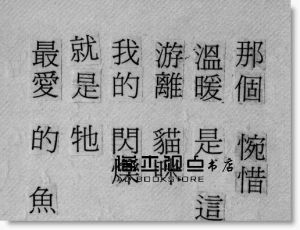 那個 惋惜
溫暖 是 這
游離 貓咪
我的 閃爍
就是 牠
最愛 的 魚
书店
BOOKSTORE